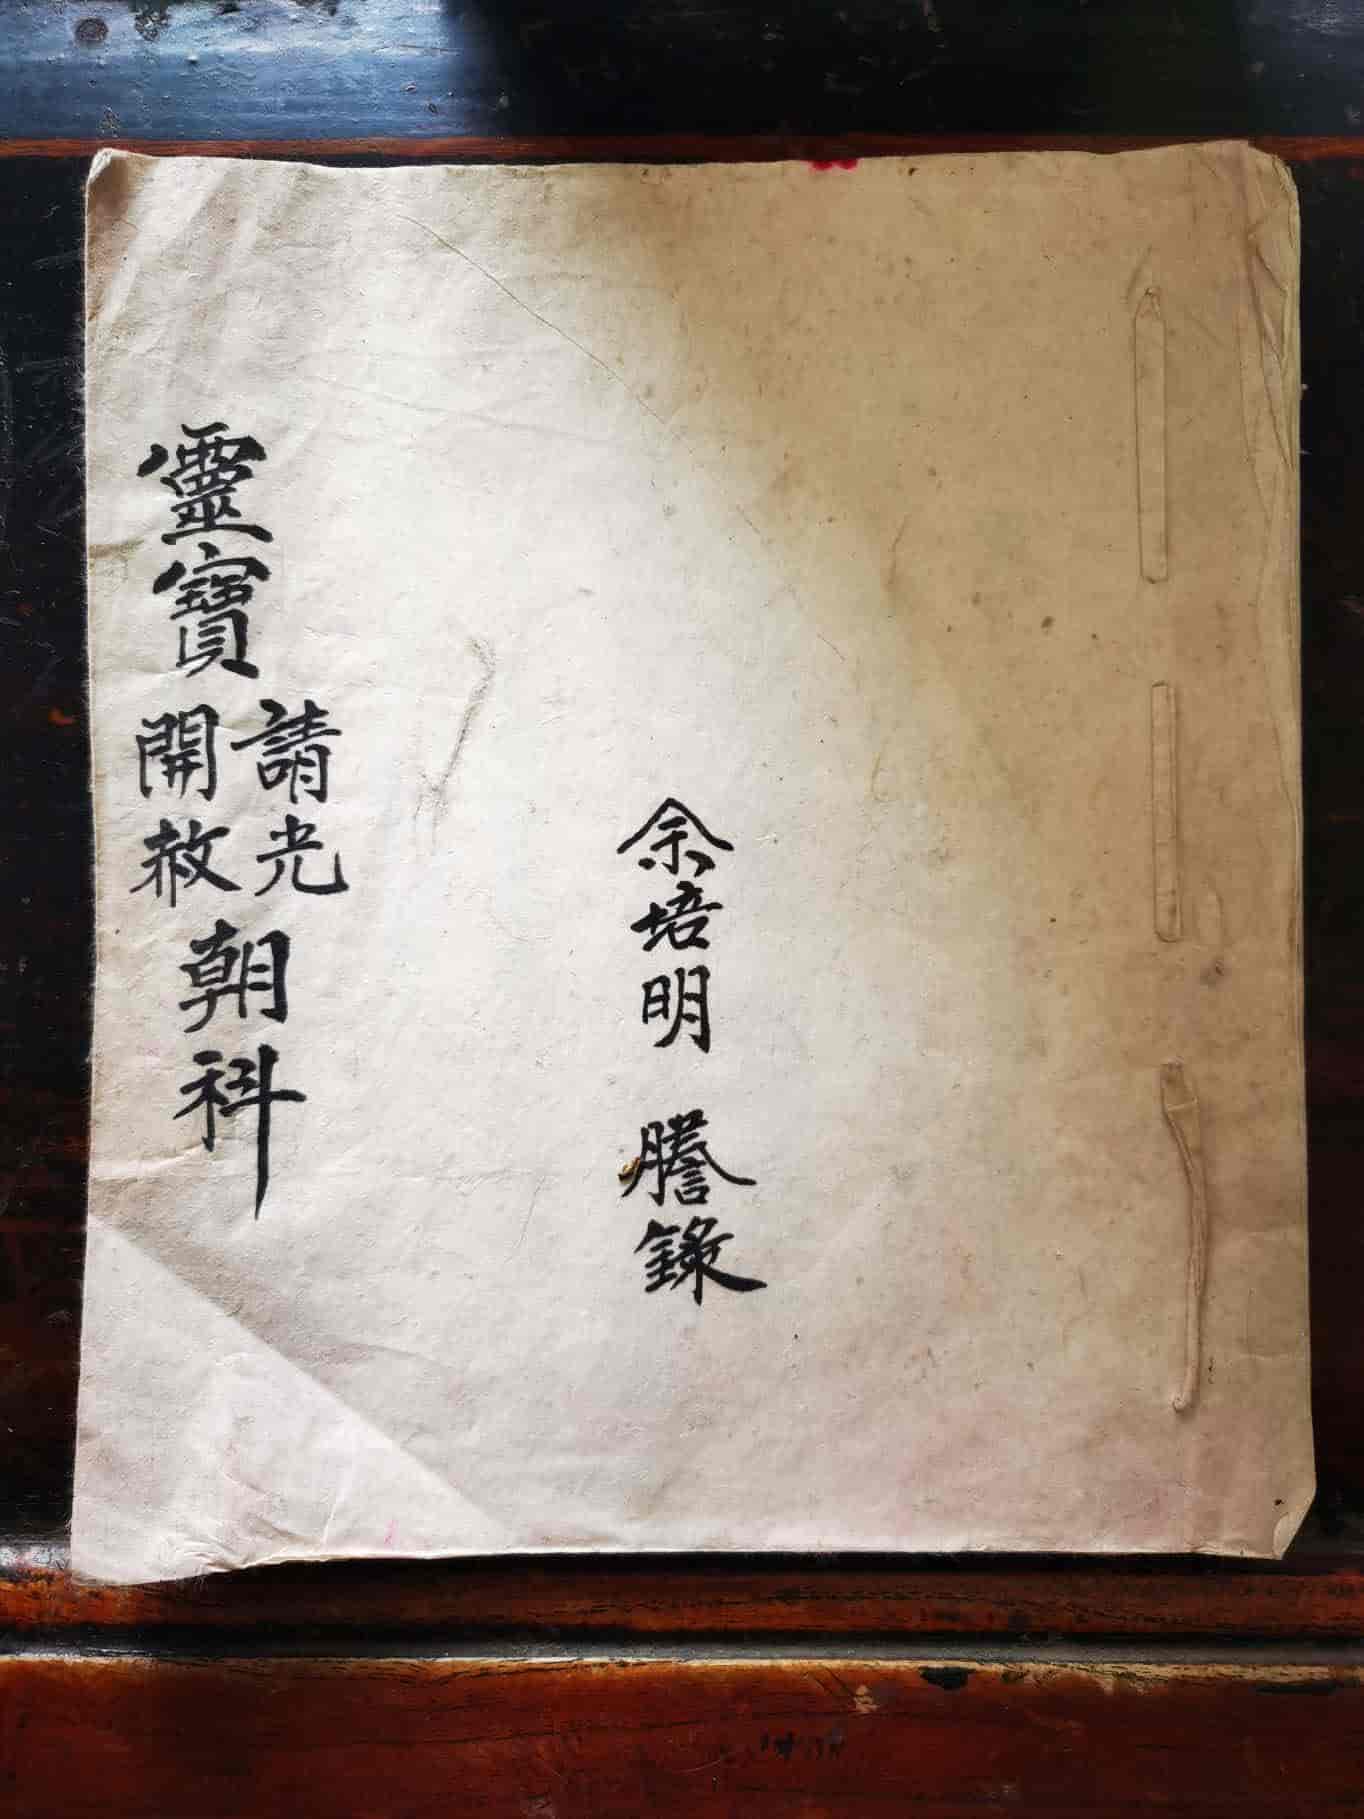 靈寶
請光
開赦
朝科
余培明 謄錄